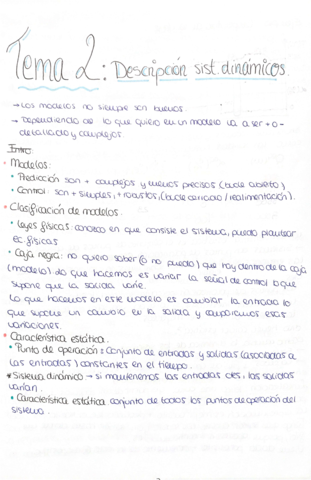 Tema 2: Descripción sist. dinámicos.
→ Los modelos no siempre son buenos.
→ Dependiendo de lo que quiero en un modelo va a ser + o -
detallado y complejos.
Intro:
• Modelos:
• Predicción son + complejos y menos precisos (bucle abierto)
• Control: son + simples, + robustos, (bucle cerrado / realimentación).
• Clasificación de modelos.
• Leyes físicas: conozco en que consiste el sistema, puedo plantear
ec. físicas
• Caja negra: no quiero saber (o no puedo) que hay dentro de la caja
(modelo). Lo que hacemos es variar la señal de control o que
supone que la salida varíe.
Lo que hacemos en este modelo es cambiar la entrada lo
que supone un cambio en la salida y comparamos esas
variaciones.
• Característica estática:
• Punto de operación: Conjunto de entradas y salidas (asociadas a
las entradas) constantes en el tiempo.
* Sistema dinámico → si mantenemos las entradas ctes, las salidas
varían.
• Característica estática conjunto de todos los puntos de operación del
sistema.